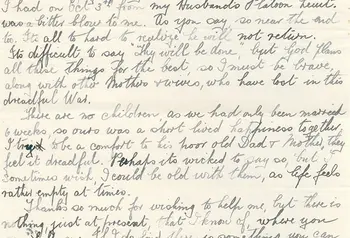 I had on Oct 3rd from my Husband's Platoon Lieut.
was a bitter blow to me. As you say, so near the end
too. Its all to hard to realize he will not return.
Its difficult to say "Thy will be done" but God Plans
all these things for the best, so I must be brave,
along with other Mothers & wives, who have lost in this
dreadful War.
There are no children, as we had only been married
6 weeks, so ours was a short lived happiness together.
I try to be a comfort to his poor old Dad & Mother, they
feel it dreadful. Perhaps its wicked to say so, but I
sometimes wish I could be old with them, as life feels
rather empty at times.
Thanks so much for wishing to help me, but there is
nothing just at present, that I know of, where you
there is something you can